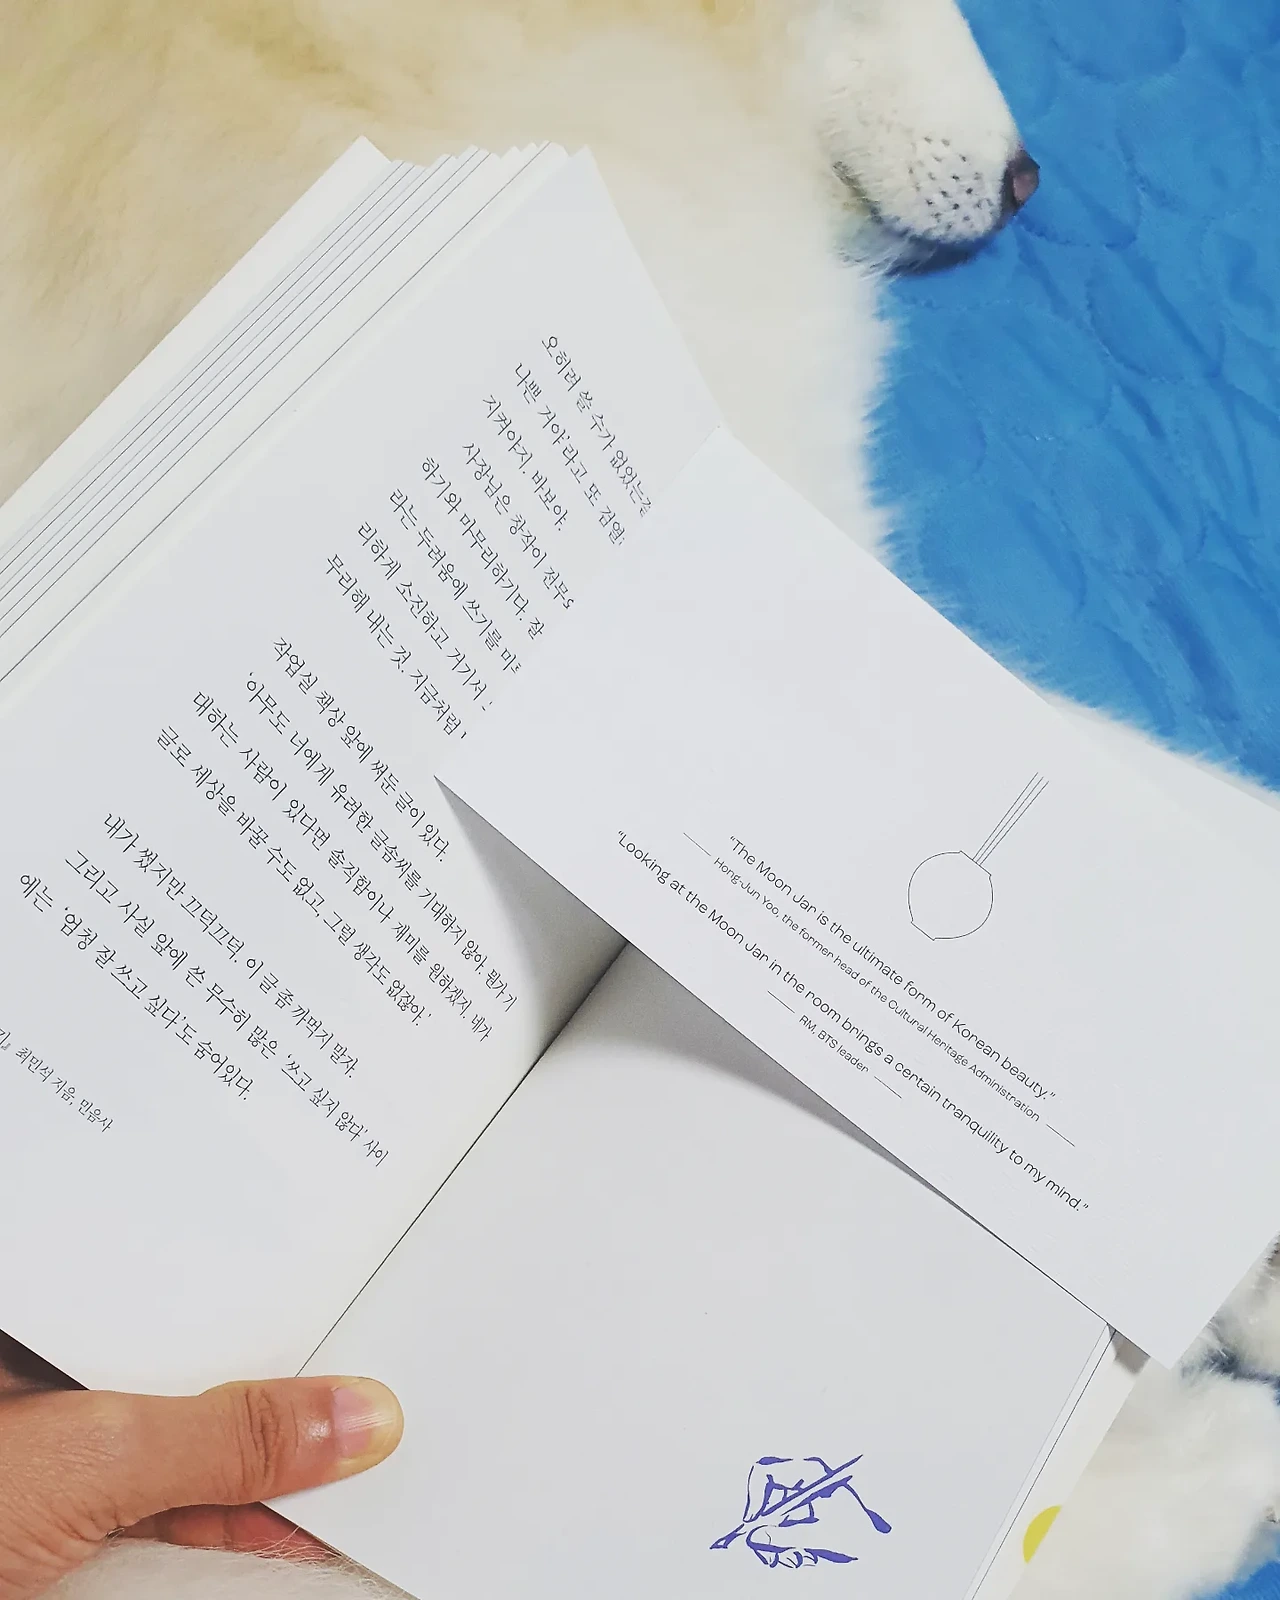 오히려 쓸 수가 없었는걸
나쁜 거야’라고 또 검열
지켜야지. 바보야.
사장님은 창작이
하기와 마무리하기다. 잘
라는 두려움에 쓰기를
리하게 소진하고 거기서
무리해 내는 것. 지금처럼
작업실 책상 앞에 써둔 글이 있다.
‘아무도 너에게 유려한 글솜씨를 기대하지 않아. 뭔가 기
대하는 사람이 있다면 솔직함이나 재미를 원하겠지. 네가
글로 세상을 바꿀 수도 없고, 그럴 생각도 없잖아.’
내가 썼지만 끄덕끄덕. 이 글 좀 까먹지 말자.
그리고 사실 앞에 쓴 무수히 많은 ‘쓰고 싶지 않다’ 사이
에는 ‘엄청 잘 쓰고 싶다’도 숨어있다.
최민석 지음, 민음사
“The Moon Jar is the ultimate form of Korean beauty.”
Hong-Jun Yoo, the former head of the Cultural Heritage Administration
“Looking at the Moon Jar in the room brings a certain tranquility to my mind.”
RM, BTS leader